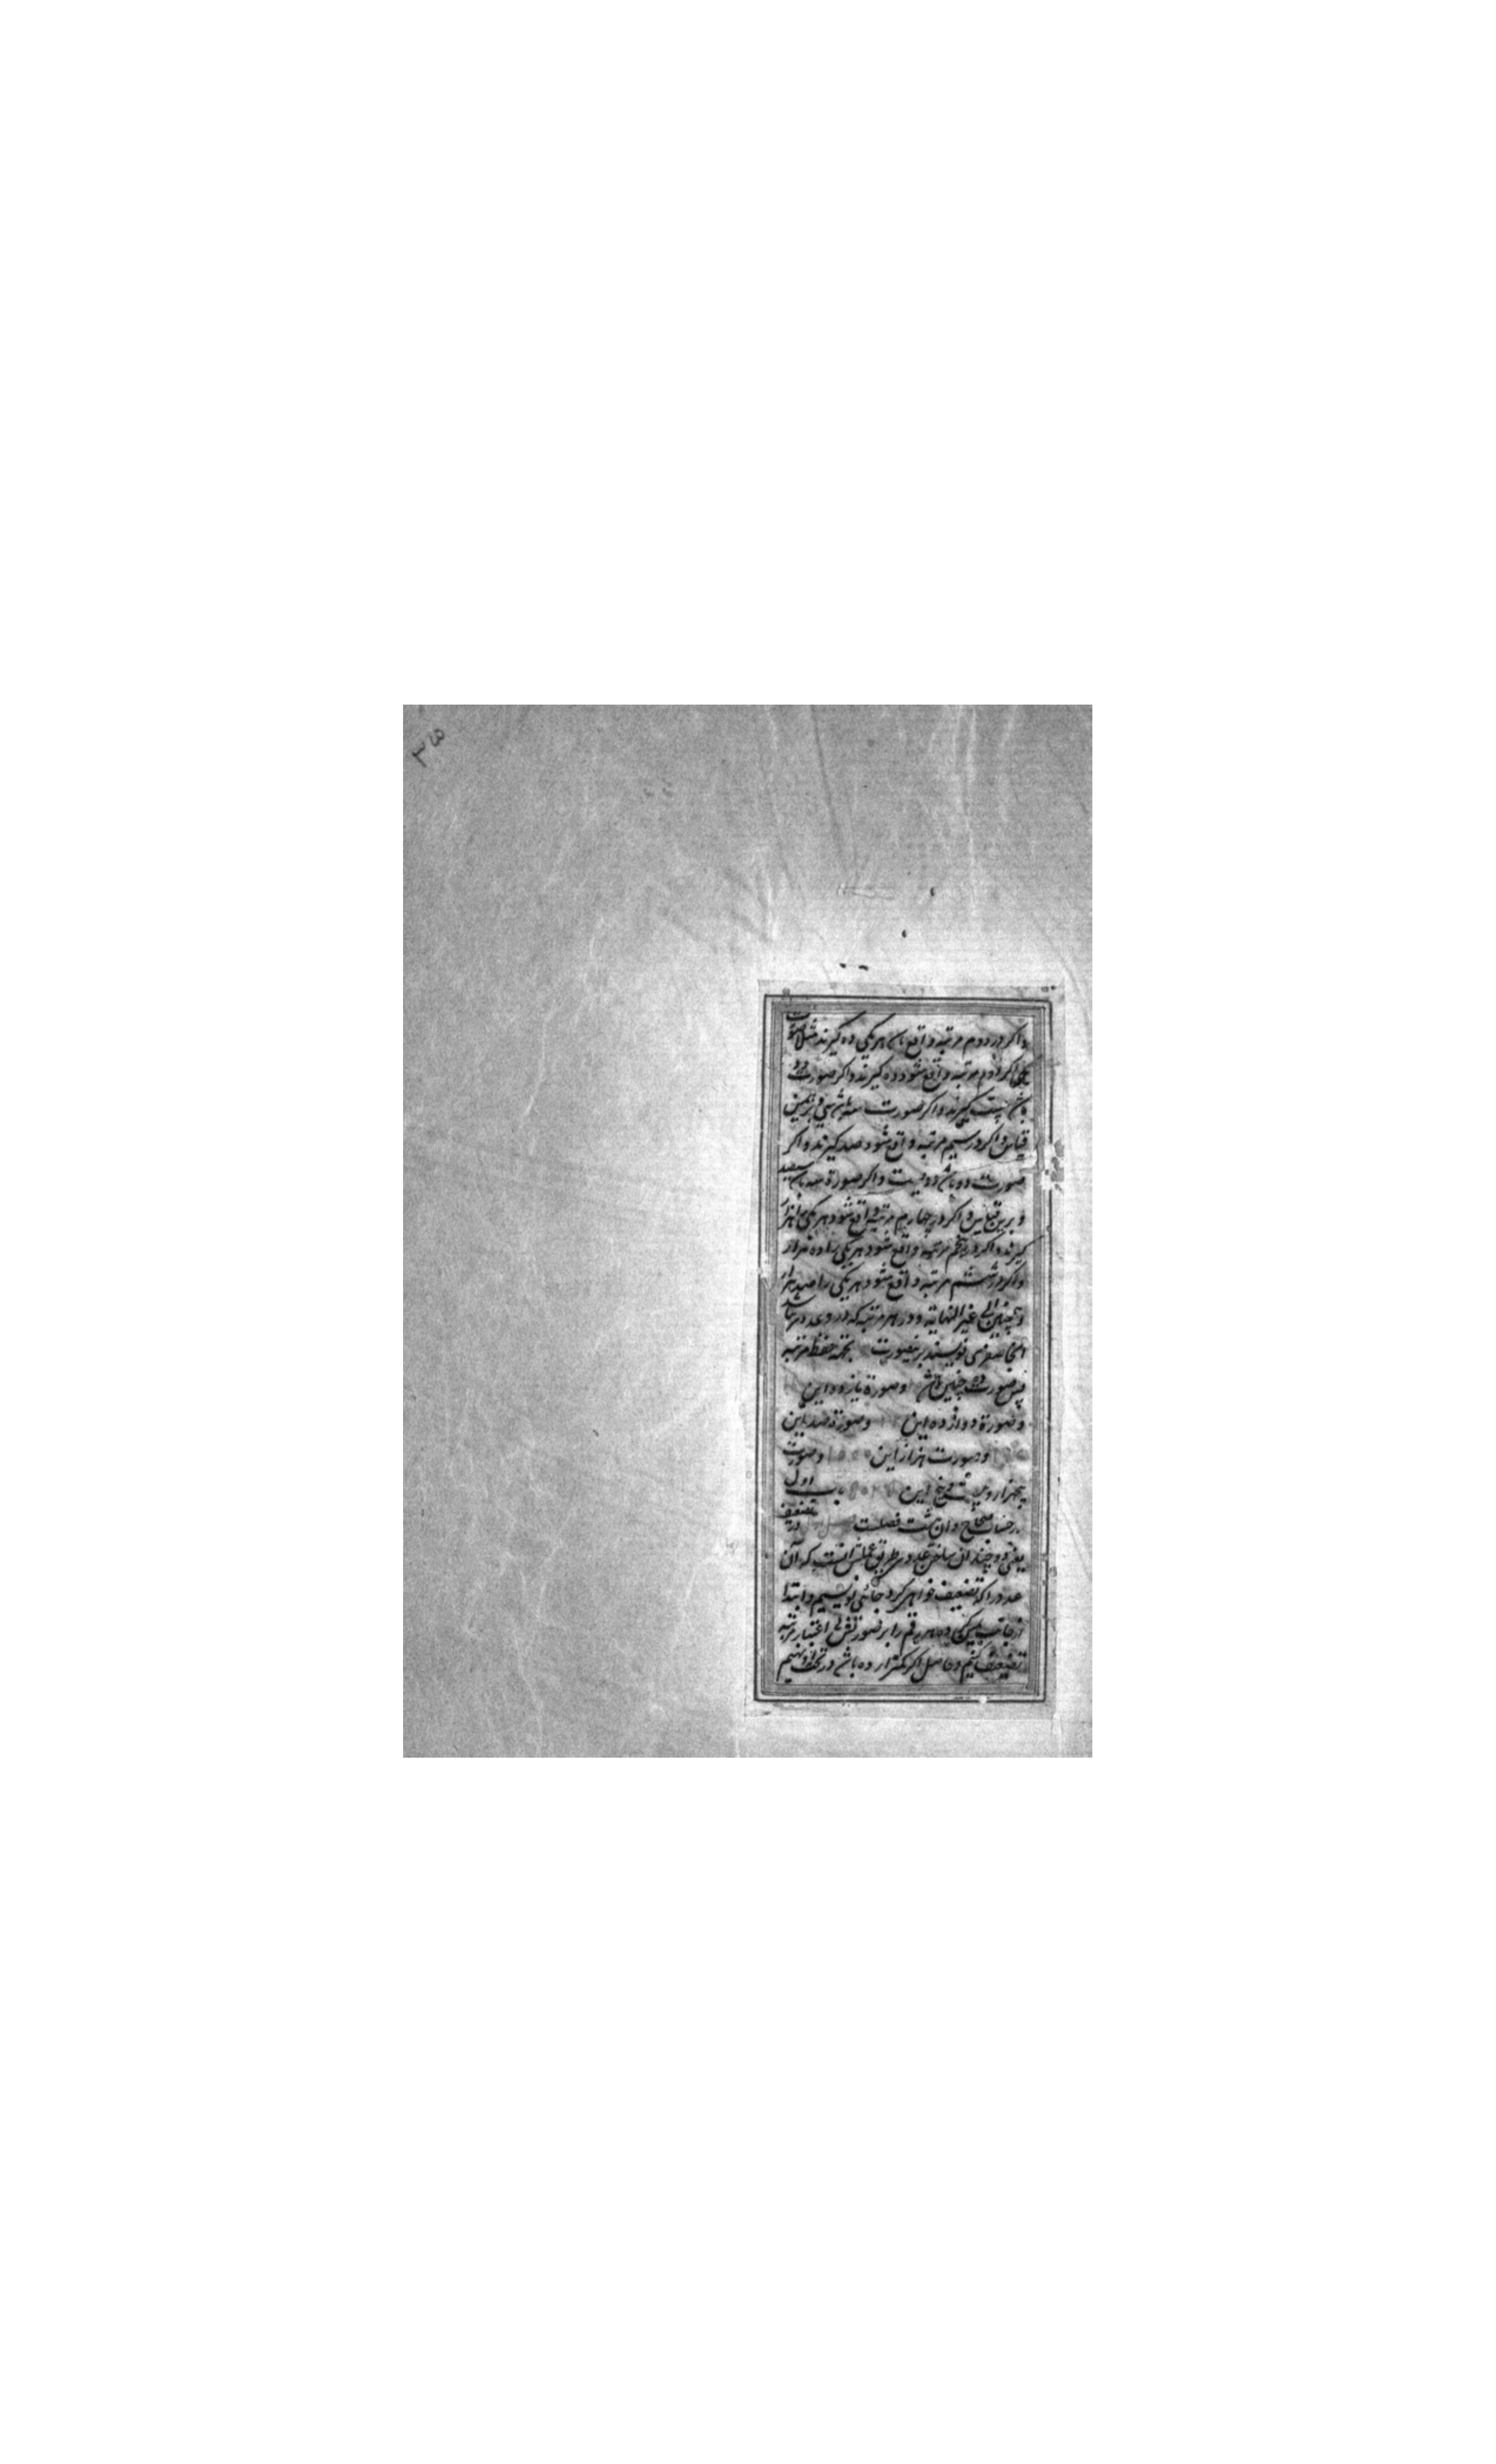 ۳۵
و اکر در دوم مرتبه واقع باشد هر یکی ده کیرند مثلا صورت
یکی اکر در دوم مرتبه واقع شود ده کیرند و اکر صورت دو
باشد بیست کیرند و اکر صورت سه باشد سی و برین
قیاس و اکر در سیم مرتبه واقع شود صد کیرند و اکر
صورت دو باشد دویست و اکر صورة سه باشد سیصد
و برین قیاس و اکر در چهارم مرتبه واقع شود هر یکی را هزار
کیرند و اکر در پنجم مرتبه واقع شود هر یکی را ده هزار
و اکر در ششم مرتبه واقع شود هر یکی را صد هزار
و همچنین الی غیر النهایه و در هر مرتبه که در و عدد نباشد
آنجا صفری نویسند برینصورت بجهة حفظ مرتبه
پس صورت ده چنین باشد و صورة یازده این
و صورة دوازده این و صورة صد این
و صورت هزار این و صورت
پنجهزار و بیست و پنج این باب اول
در حساب صحاح و آن هشت فصلست در تضعیف
یعنی دو چندان ساختن عدد و طریق عملش آنست که آن
عدد را که تضعیف خواهیم کرد جائی نویسیم و ابتدا
از جانب یمین کرده هر رقم را بر صورتش بی اعتبار مرتبه
تضعیف کنیم و حاصل اکر کمتر از ده باشد در تحت او نهیم